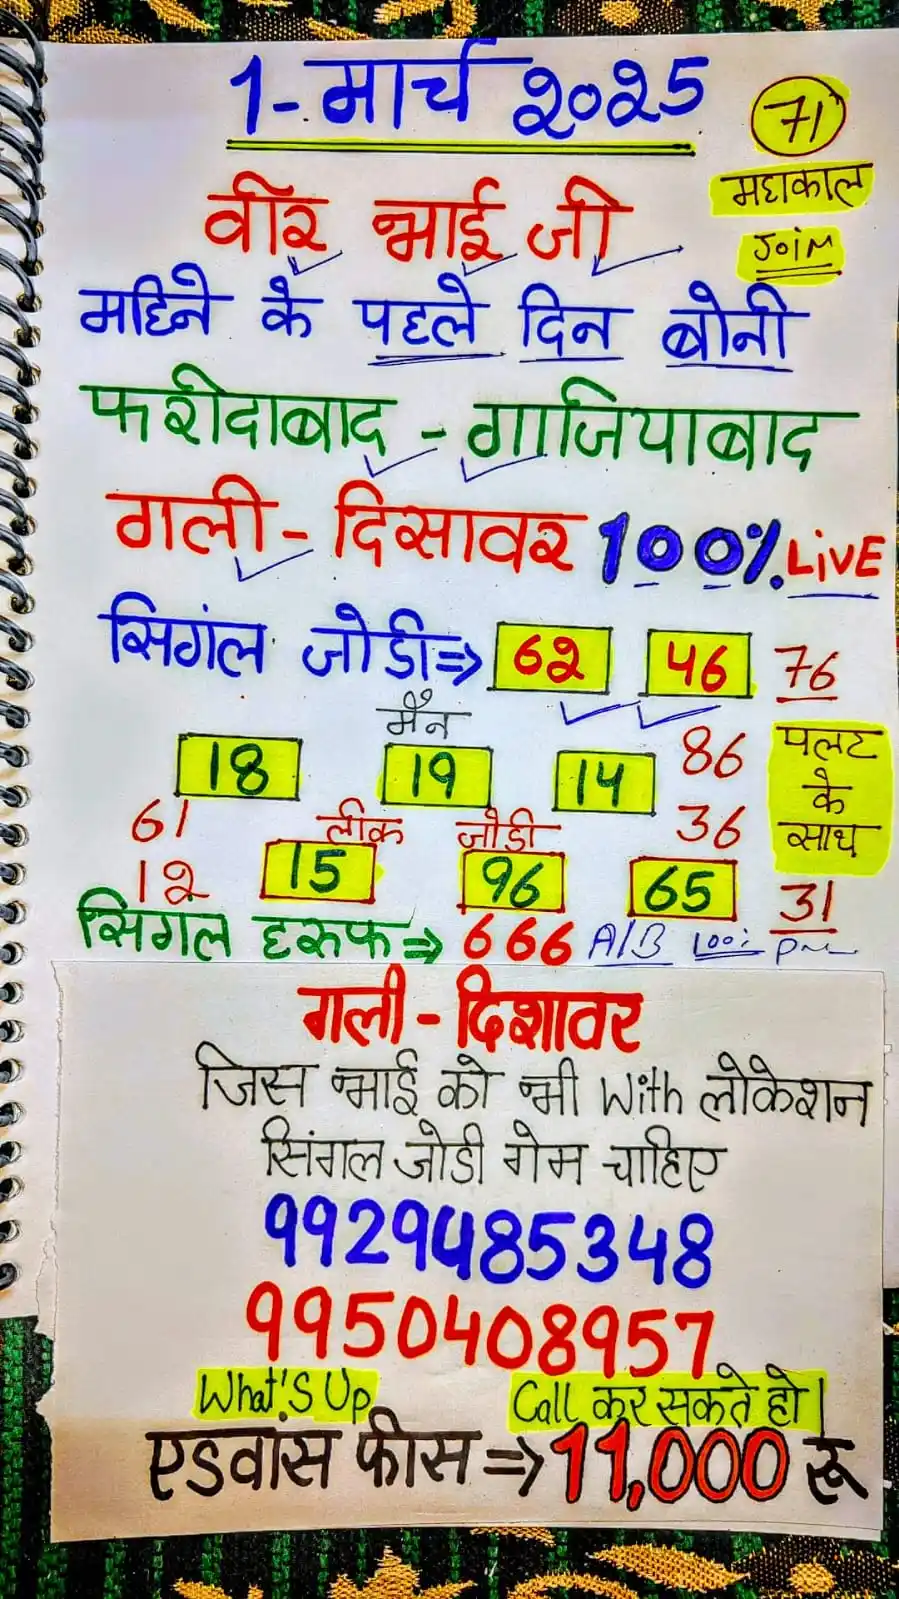 1-मार्च २०२५
71
महाकाल
Join
वीर भाई जी
महिने के पहले दिन बोनी
फरीदाबाद - गाजियाबाद
गली - दिसावर 100% LiVE
सिगंल जोडी⇒ 6२ 46 76
मैन
18 19 14 86 पलट के साथ
61 लीक जोडी 36
1२ 15 96 65 31
सिगंल हरुफ⇒ 666 A/B 100%
गली - दिशावर
जिस भाई को भी With लोकेशन
सिंगल जोडी गेम चाहिए
9929485348
9950408957
What'S Up Call कर सकते हो।
एडवांस फीस ⇒ 11,000 रू